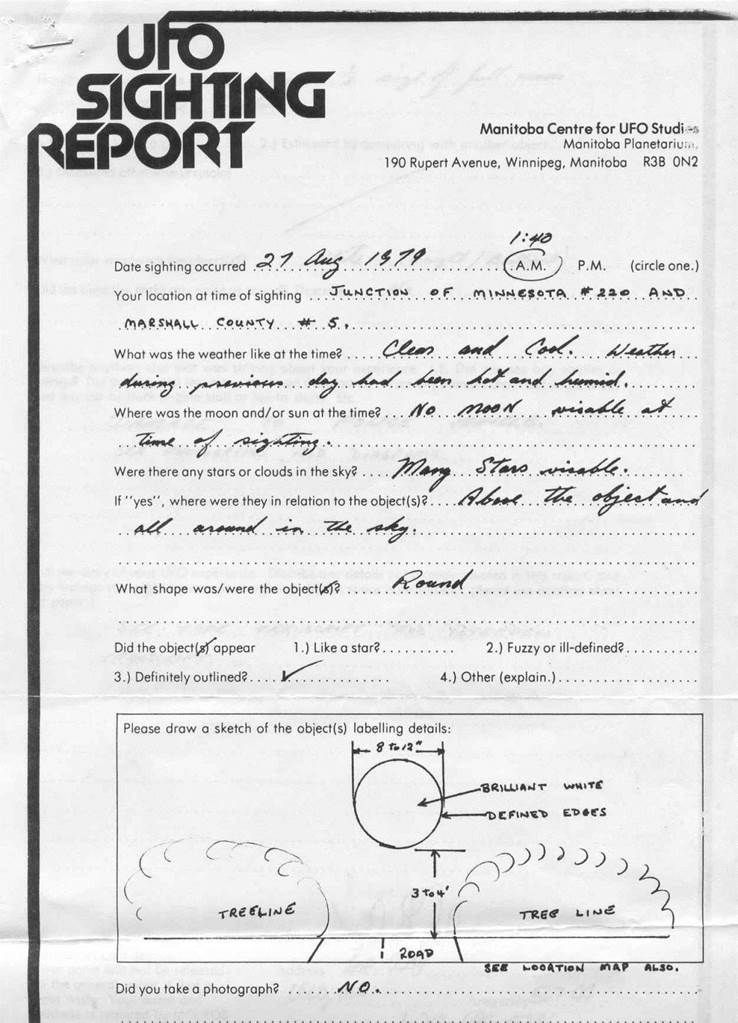 UFO
SIGHTING
REPORT
Manitoba Centre for UFO Studies
Manitoba Planetarium,
190 Rupert Avenue, Winnipeg, Manitoba R3B 0N2
1:40
Date sighting occurred 27 Aug 1979 A.M. P.M. (circle one.)
Your location at time of sighting JUNCTION OF MINNESOTA # 220 AND
MARSHALL COUNTY # 5.
What was the weather like at the time? Clear and Cool. Weather
during previous day had been hot and humid.
Where was the moon and/or sun at the time? No MOON visable at
time of sighting.
Were there any stars or clouds in the sky? Many Stars visable.
If "yes", where were they in relation to the object(s)? Above the object and
all around in the sky.
What shape was/were the object(s)? Round
Did the object(s) appear 1.) Like a star? 2.) Fuzzy or ill-defined?
3.) Definitely outlined? ✓ 4.) Other (explain.)
Please draw a sketch of the object(s) labelling details:
8 to 12"
BRILLIANT WHITE
DEFINED EDGES
3 to 4'
TREELINE
TREE LINE
ROAD
SEE LOCATION MAP ALSO.
Did you take a photograph? NO.